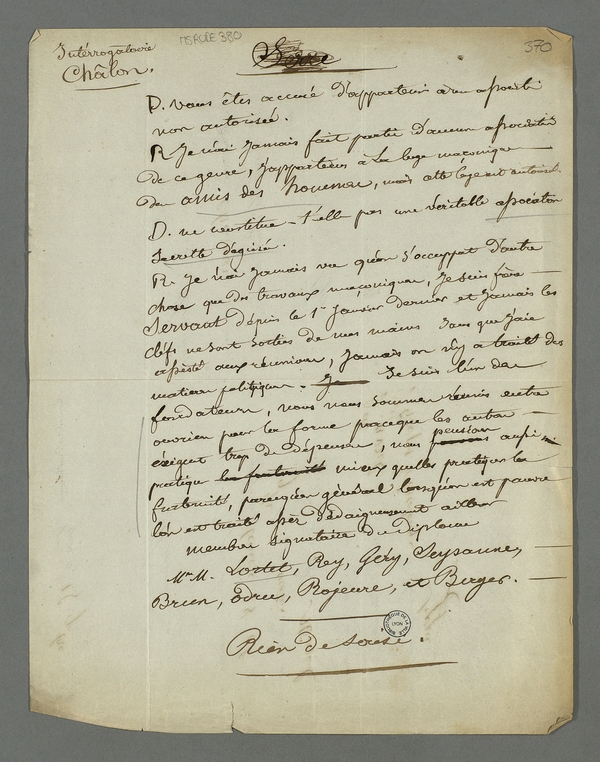 MS RUDE 380
370
Intérrogatoire
Châlon.
D. vous êtes accusé d'appartenir à une associati
non autorisée.
R. Je n'ai jamais fait partie d'aucune association
de ce genre, j'appartiens à la loge maçonique
des amis des hommes, mais cette loge est autorisée.
D. ne constitue-t-elle pas une véritable association
secrette déguisée.
R. Je n'ai jamais vu qu'on s'occuppat d'autre
chose que des travaux maçoniques, je suis frère
servant dépuis le 1er Janvier dernier et jamais les
clefs ne sont sorties de mes mains sans que j'aie
assisté aux réunions, jamais on n'y a traité des
matières politiques. Je Je suis l'un des
fondateurs, nous nous sommes réunis entre
ouvriers pour les former parceque les autres
éxigent trop de dépenses, nous pensons aussi
pratiquer la fraternité mieux quelles pratiquer la
fraternité, parcequ'en général lorsqu'on est pauvre
l'on est traité assèz dédaigneusement ailleurs
membres signataires du diplome
Mrs M. Lortet, Rey, Géry, Seysanne,
Brun, Odru, Rojeure, et Berger.
BIBLIOTHEQUE DE LA VILLE LYON
Rien de sousé.